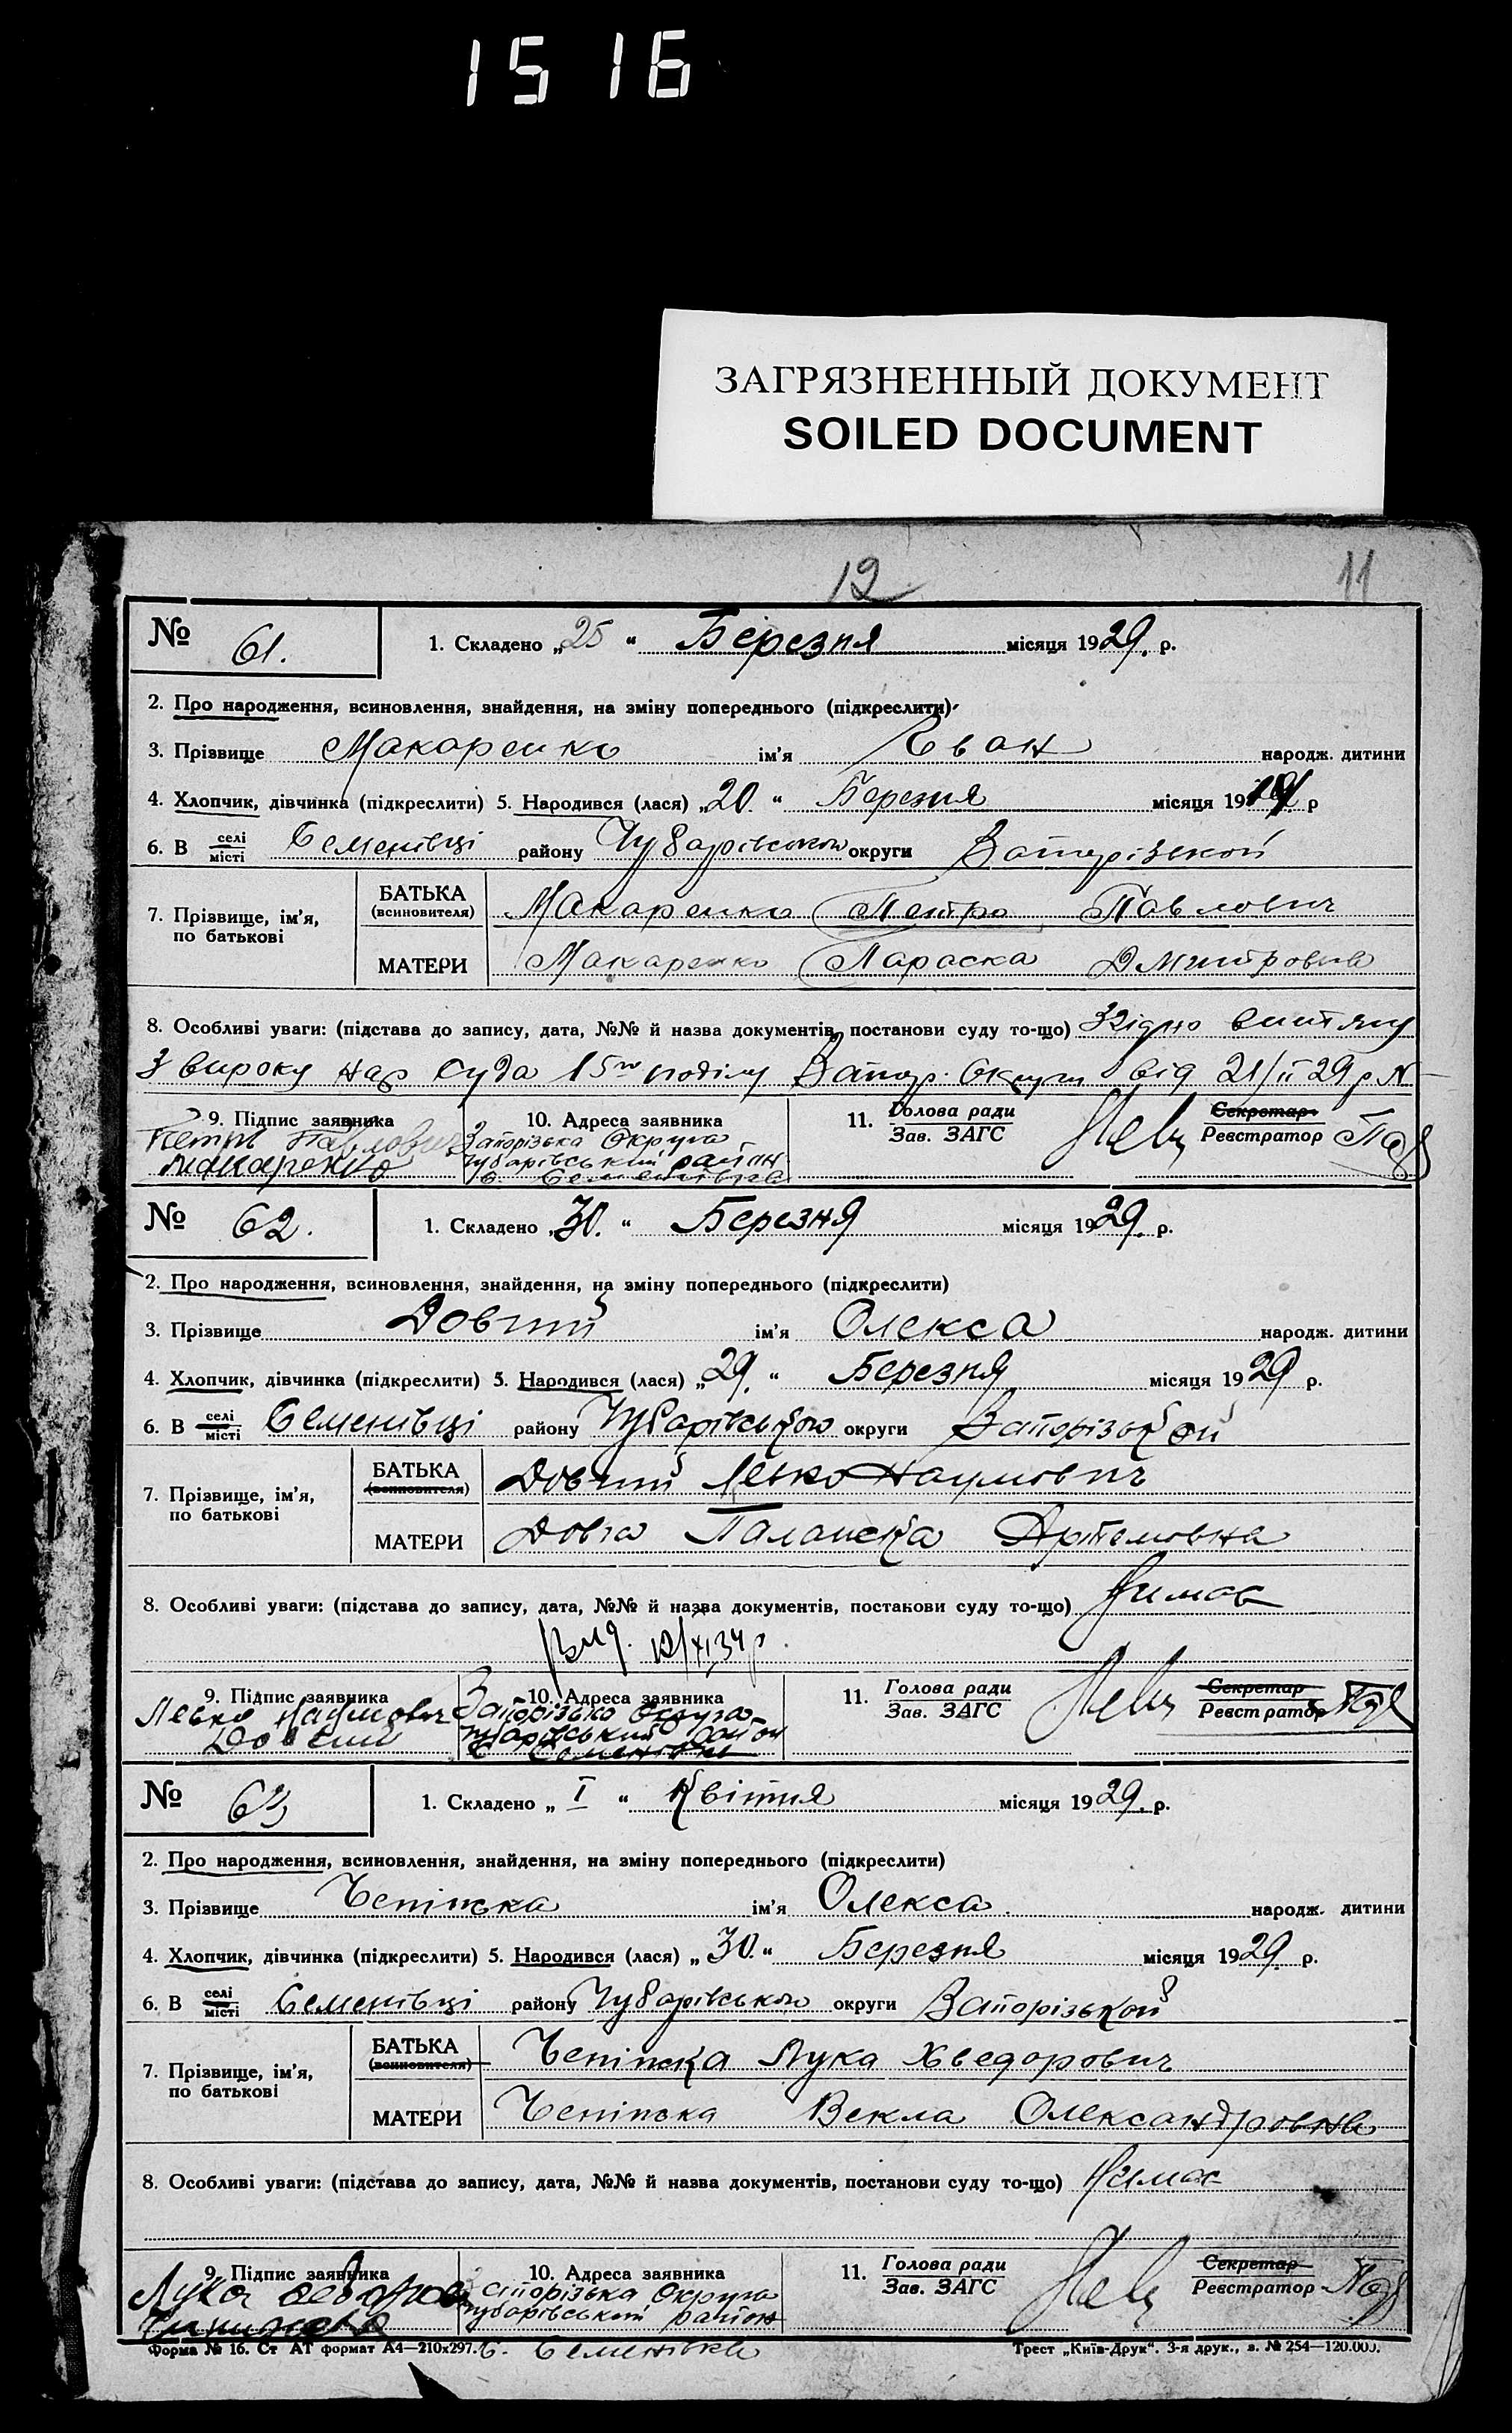 15 16
ЗАГРЯЗНЕННЫЙ ДОКУМЕНТ
SOILED DOCUMENT
12 11
№ 61. 1. Складено „25“ Березня місяця 1929. р.
2. Про народження, всиновлення, знайдення, на зміну попереднього (підкреслити)
3. Прізвище Макаренко ім'я Іван народж. дитини
4. Хлопчик, дівчинка (підкреслити) 5. Народився (лася) „20.“ Березня місяця 19 р
6. В селі Семенівці району Чубарівського округи Запорізької
місті
7. Прізвище, ім'я, по батькові
БАТЬКА (всиновителя) Макаренко Петро Павлович
МАТЕРИ Макаренко Параска Дмитровна
8. Особливі уваги: (підстава до запису, дата, №№ й назва документів, постанови суду то-що) Згідно витягу
з вироку нар суда 15го поділу Запор. Округи від 21/II 29 р №
9. Підпис заявника 10. Адреса заявника 11. Голова ради Секретар
Зав. ЗАГС Реєстратор
Петро Павлович Запорізька Округа
Макаренко Чубарівський район
с. Семенівка
№ 62. 1. Складено „30.“ Березня місяця 1929. р.
2. Про народження, всиновлення, знайдення, на зміну попереднього (підкреслити)
3. Прізвище Довгий ім'я Олекса народж. дитини
4. Хлопчик, дівчинка (підкреслити) 5. Народився (лася) „29.“ Березня місяця 1929 р.
6. В селі Семенівці району Чубарівського округи Запорізької
місті
7. Прізвище, ім'я, по батькові
БАТЬКА (всиновителя) Довгий Левко Наумович
МАТЕРИ Довга Палашка Артемовна
8. Особливі уваги: (підстава до запису, дата, №№ й назва документів, постанови суду то-що) Нимає
34 р.
9. Підпис заявника 10. Адреса заявника 11. Голова ради Секретар
Зав. ЗАГС Реєстратор
Левко Наумович Запорізька Округа
Довгий Чубарівський район
с Семенівка
№ 63 1. Складено „I“ Квітня місяця 1929. р.
2. Про народження, всиновлення, знайдення, на зміну попереднього (підкреслити)
3. Прізвище Чепіжка ім'я Олекса. народж. дитини
4. Хлопчик, дівчинка (підкреслити) 5. Народився (лася) „30.“ Березня місяця 1929. р.
6. В селі Семенівці району Чубарівського округи Запорізької
місті
7. Прізвище, ім'я, по батькові
БАТЬКА (всиновителя) Лука Хведорович
МАТЕРИ Векла Олександровна
8. Особливі уваги: (підстава до запису, дата, №№ й назва документів, постанови суду то-що) Нимає
9. Підпис заявника 10. Адреса заявника 11. Голова ради Секретар
Зав. ЗАГС Реєстратор
Лука Запорізька Округа
Чубарівський район
с. Семенівка
Форма № 16. Ст АТ формат А4—210х297. Трест „Київ-Друк“. 3-я друк., з. № 254—120.000.